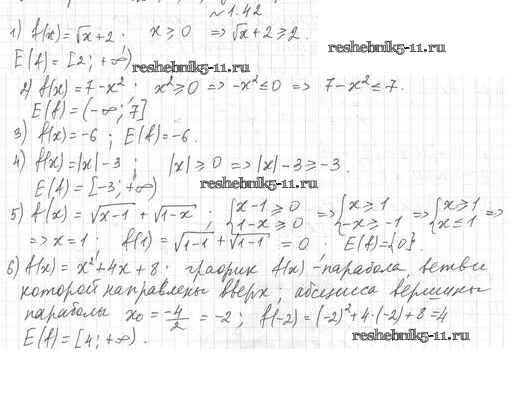 №1.42
1) f(x)=√x+2 ; x≥0 ⇒ √x+2≥2.
reshebnik5-11.ru
E(f)=[2;+∞)
reshebnik5-11.ru
2) f(x)=7-x²; x²≥0 ⇒ -x²≤0 ⇒ 7-x²≤7.
E(f)=(-∞;7]
3) f(x)=-6; E(f)=-6.
4) f(x)=|x|-3 ; |x|≥0 ⇒ |x|-3≥-3.
E(f)=[-3;+∞)
reshebnik5-11.ru
5) f(x)=√x-1 + √1-x ; {x-1≥0 1-x≥0 ⇒ {x≥1 -x≥-1 ⇒ {x≥1 x≤1 ⇒
⇒ x=1; f(1)=√1-1+√1-1=0. E(f)={0}.
6) f(x)=x²+4x+8; график f(x)-парабола, ветви
которой направлены вверх; абсцисса вершины
параболы x₀=-4/2=-2; f(-2)=(-2)²+4·(-2)+8=4
reshebnik5-11.ru
E(f)=[4;+∞).